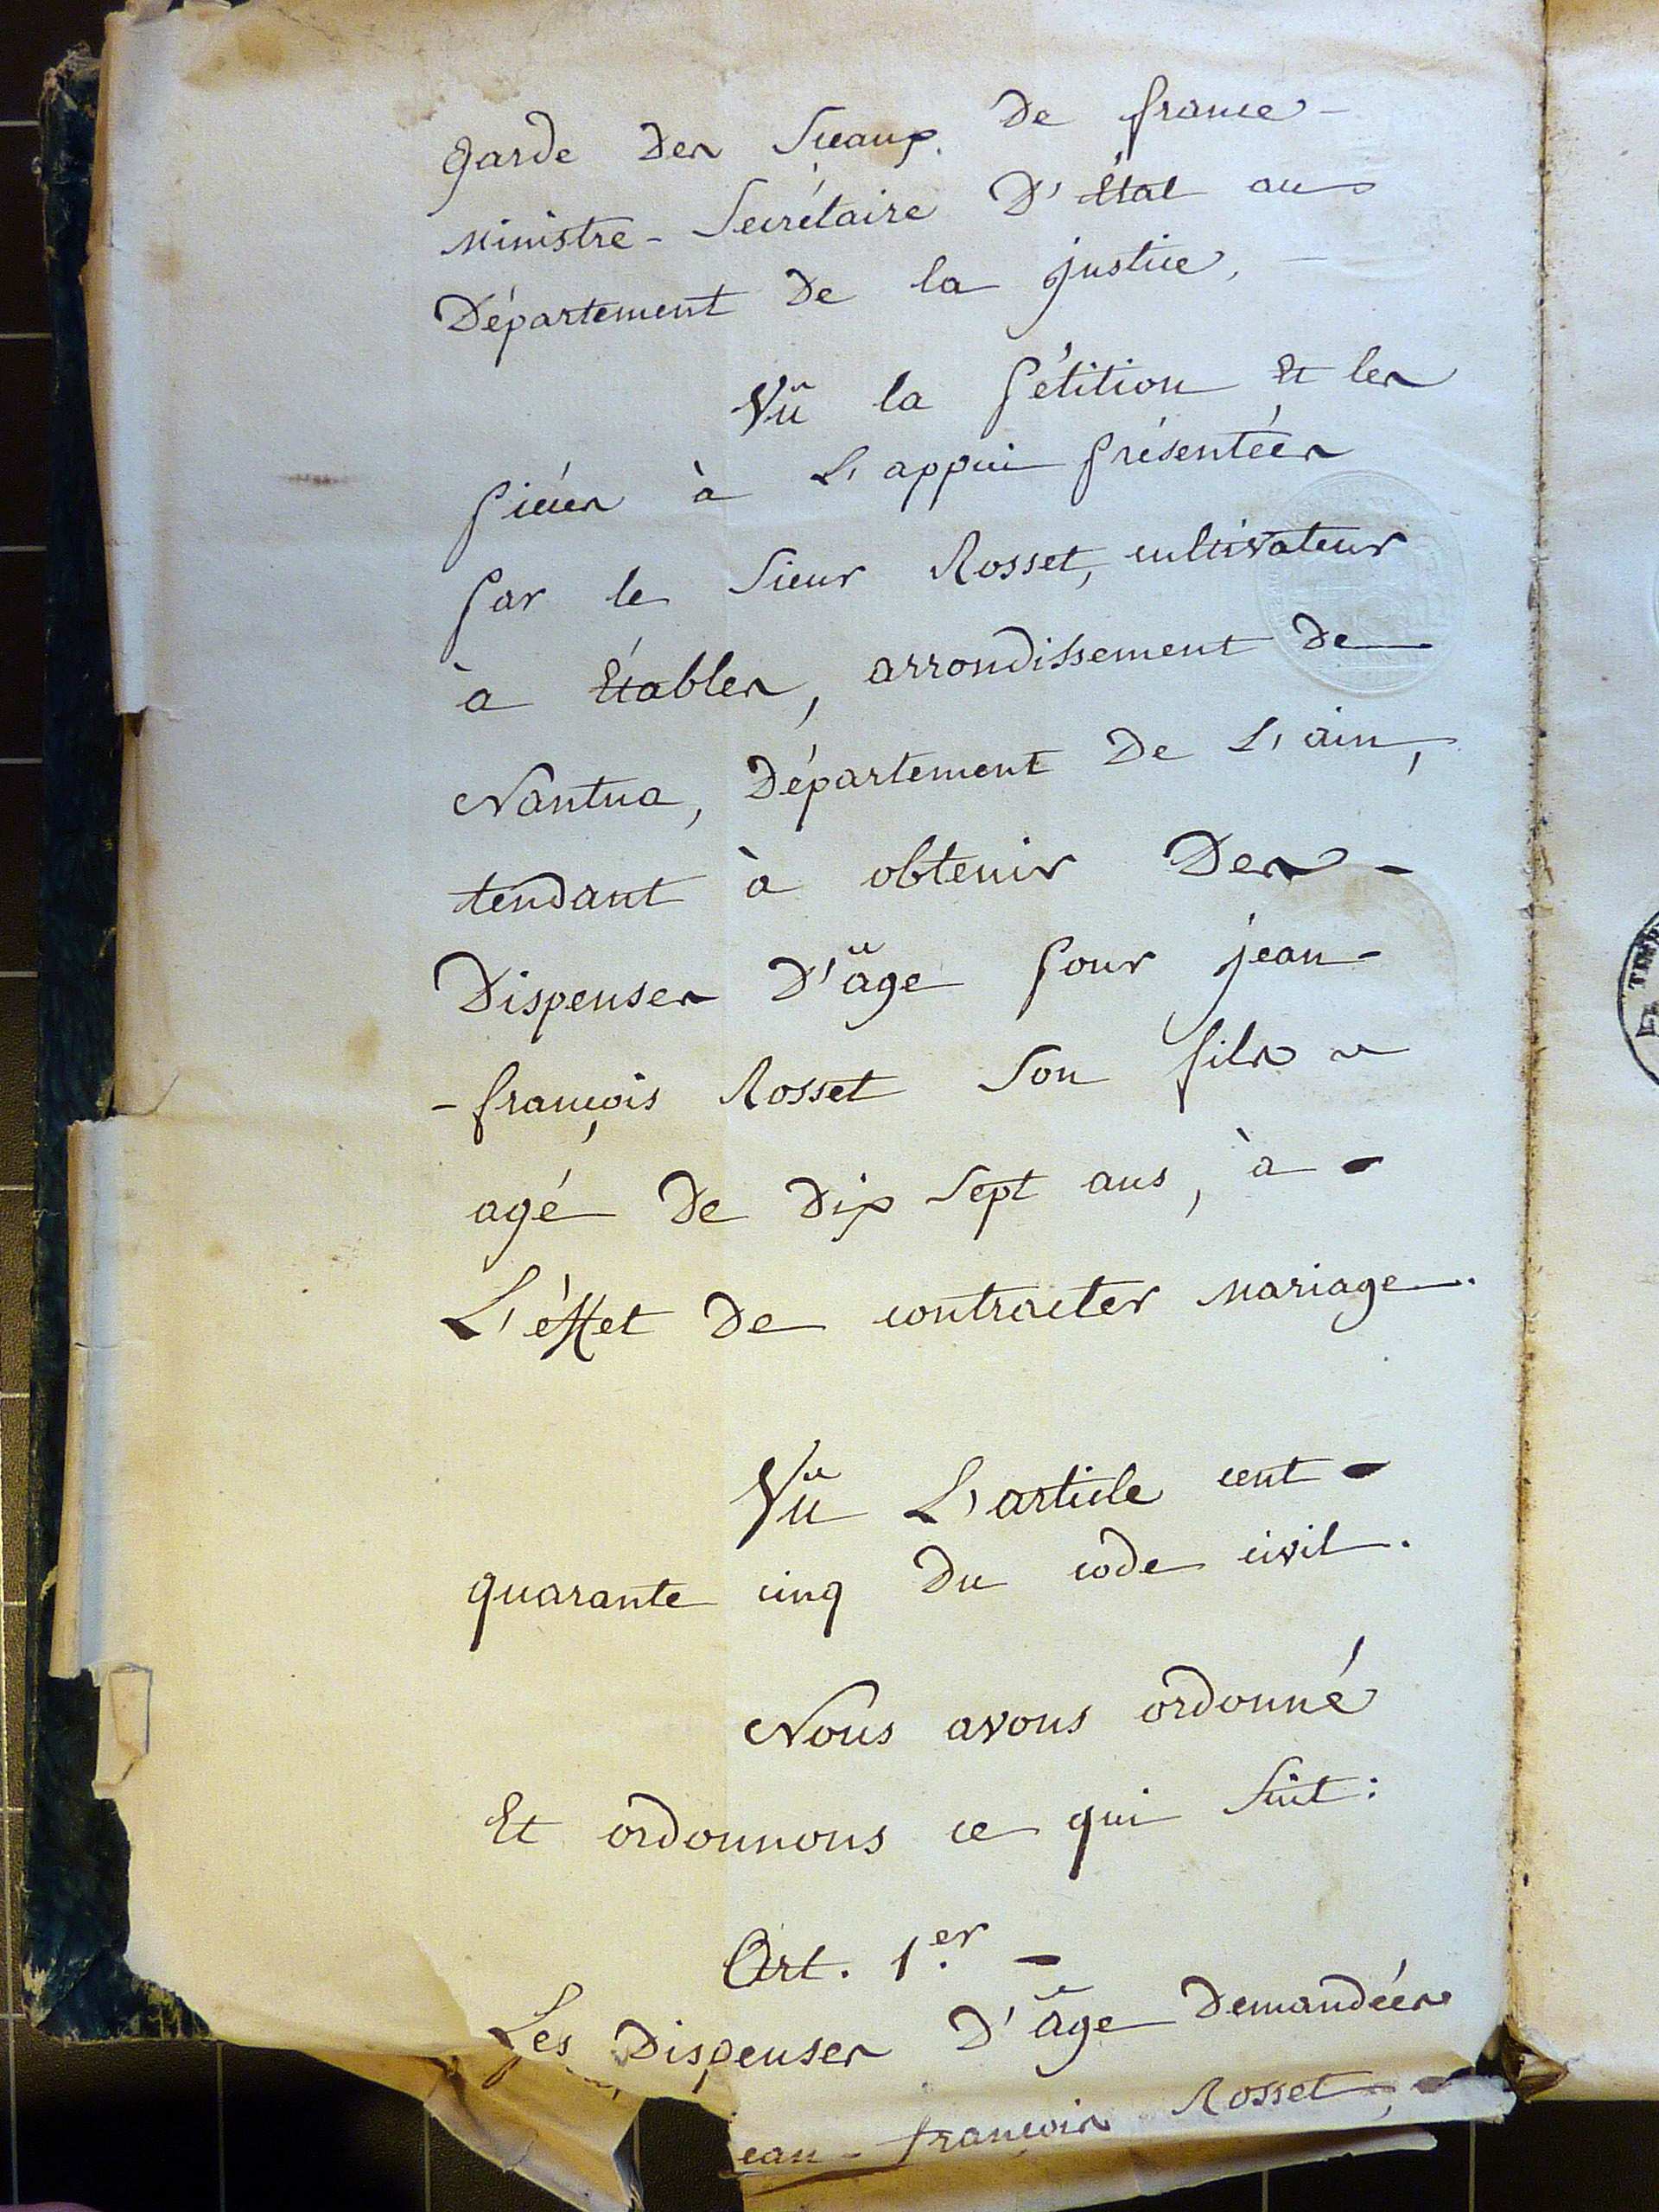 Garde des Sceaux de france -
Ministre - Secrétaire D'État au
Département De la justice, -
Vû la pétition Et les
pièces à L'appui présentées
par le Sieur Rosset, cultivateur
à Etables, arrondissement De
Nantua, Département De L'ain,
tendant à obtenir Des -
Dispenses D'âge pour jean -
- françois Rosset Son fils
agé De Dix Sept ans, à -
L'éffet De contracter Mariage.
Vû L'article cent -
quarante cinq Du code civil.
Nous avons ordonné
Et ordonnons ce qui Suit :
Art. 1er. -
Les Dispenses D'âge Demandées
ean - françois Rosset, -